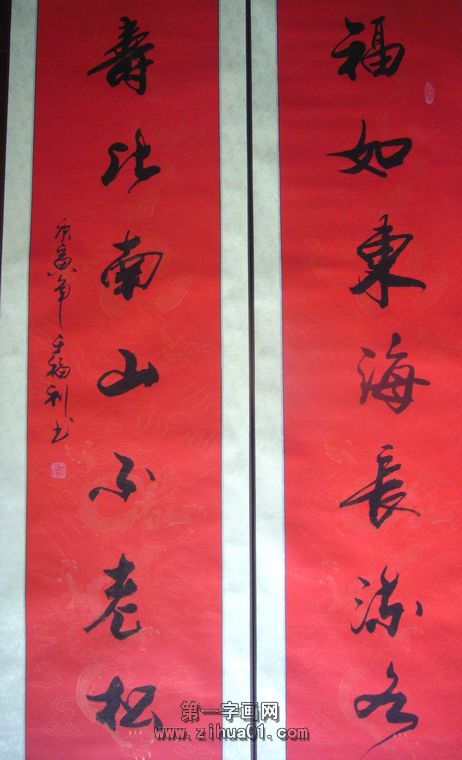 福如東海長流水
壽比南山不老松
庚寅年 福利书
第一字画网
www.zihua01.com